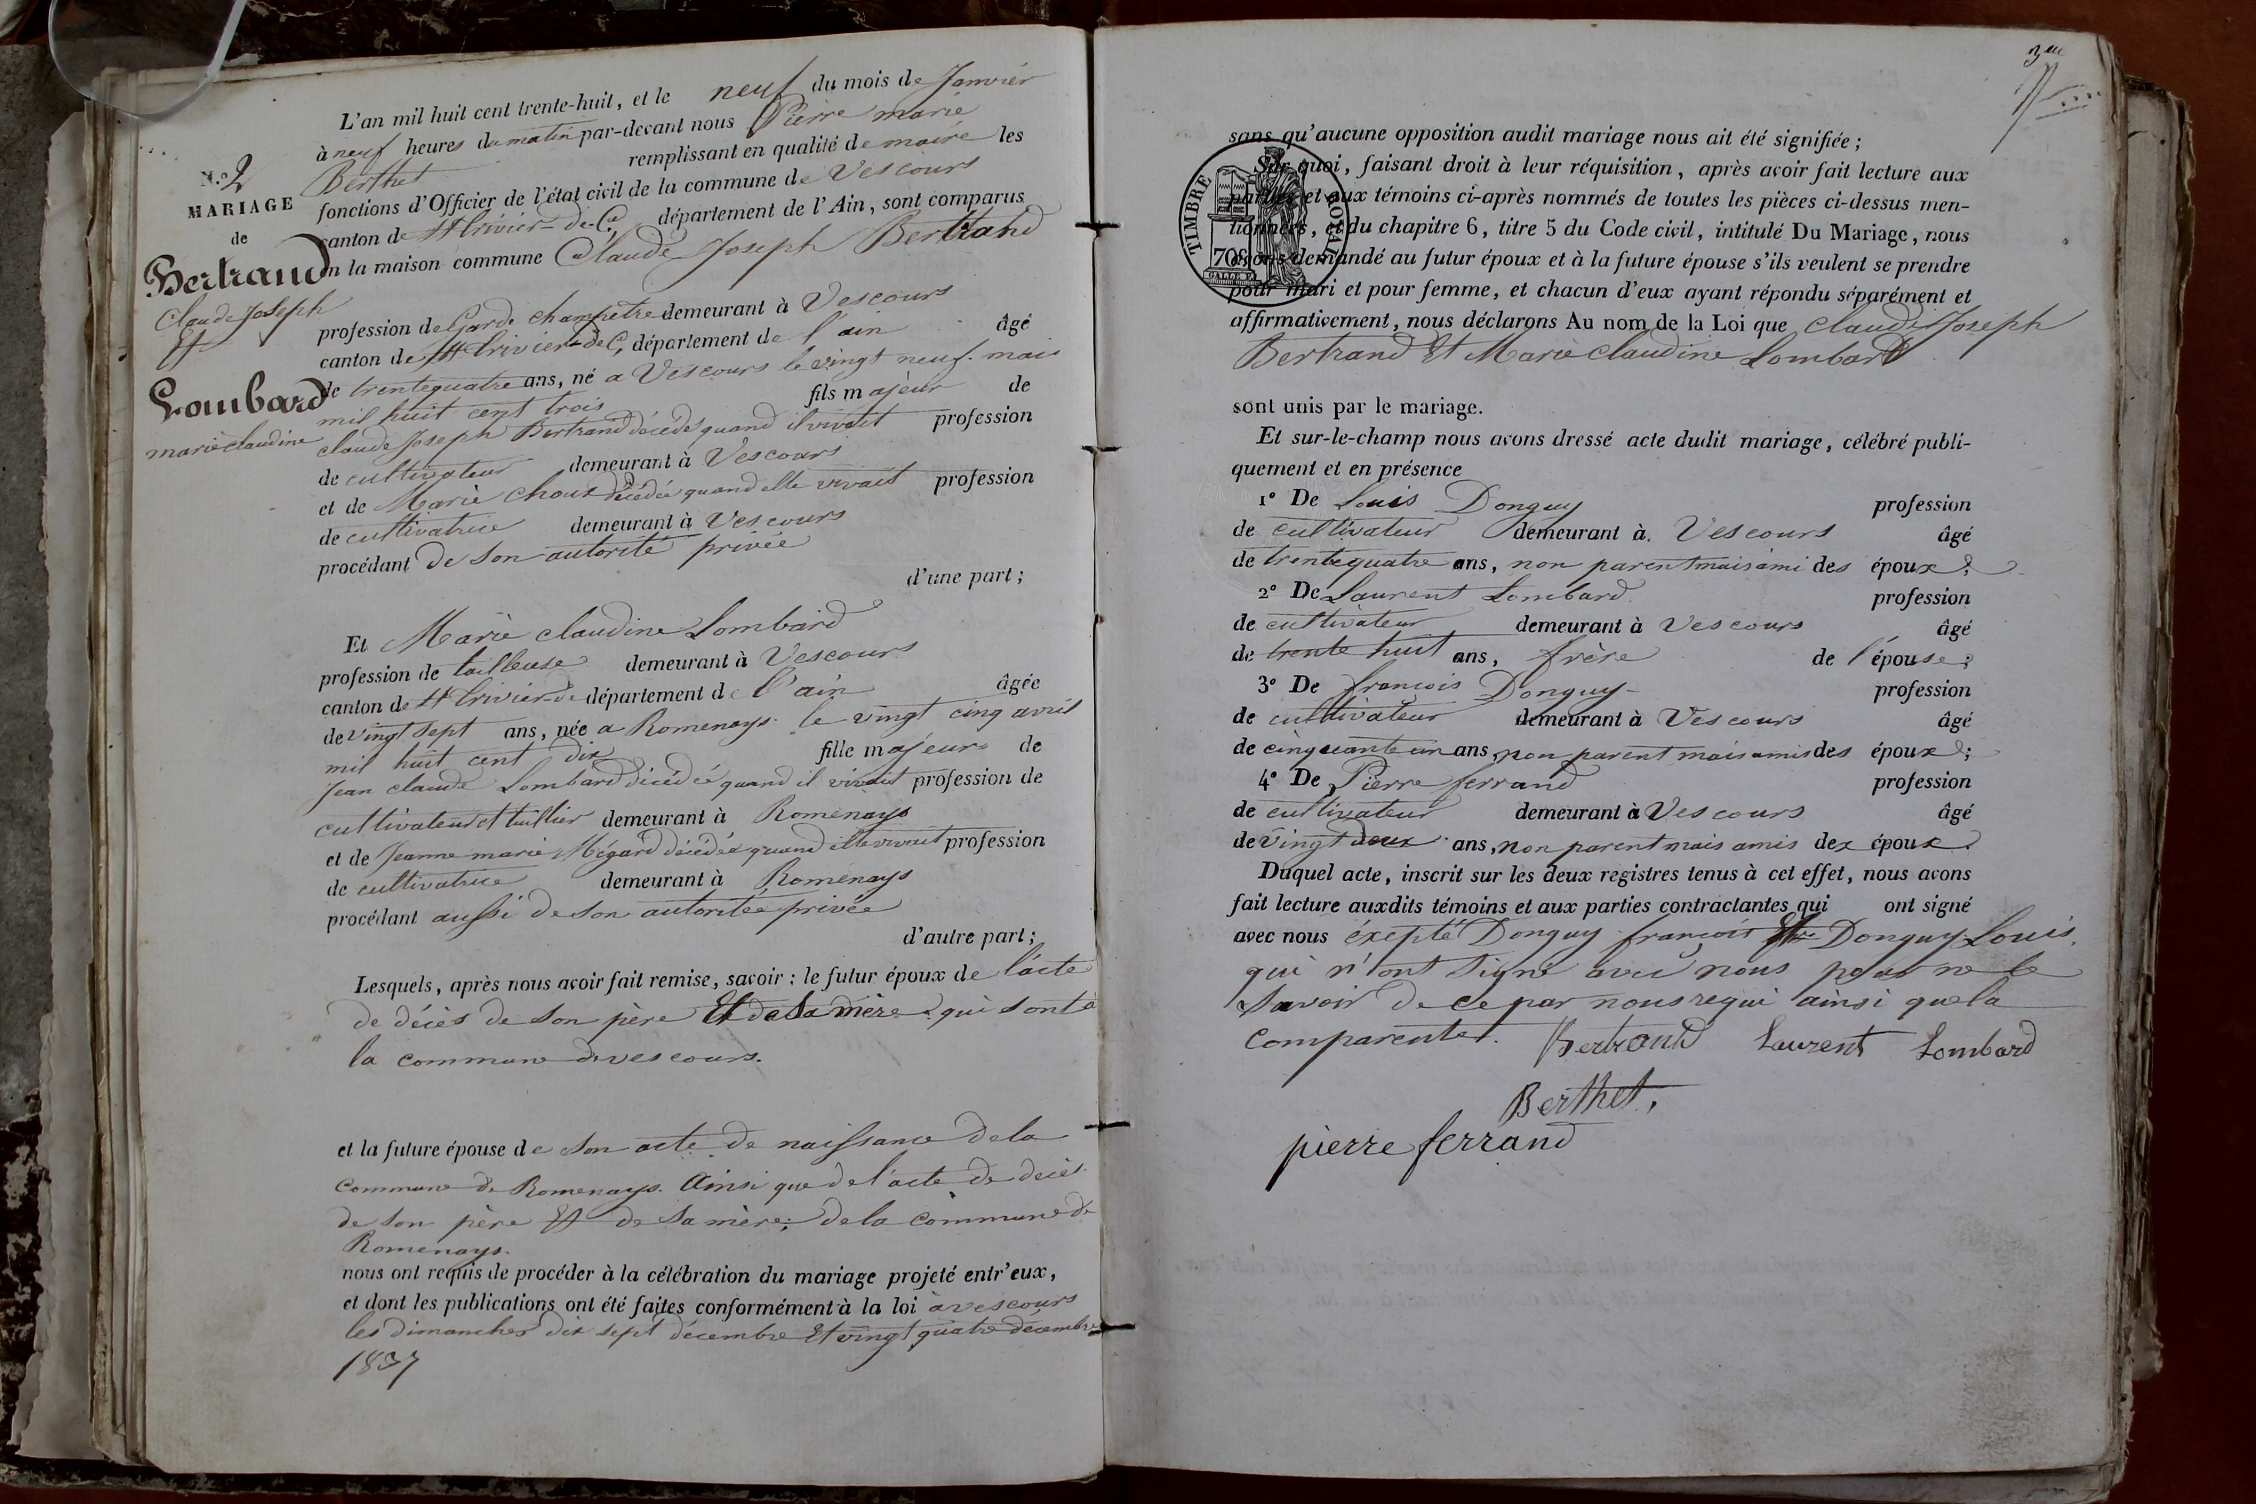 N.o 2
MARIAGE
de
Bertrand
Claude Joseph
Et
Lombard
marie claudine
L'an mil huit cent trente-huit, et le neuf du mois de Janvier
à neuf heures du matin par-devant nous Pierre marie
Berthet remplissant en qualité de maire les
fonctions d'Officier de l'état civil de la commune de Vescours
canton de St trivier-de-C, département de l'Ain, sont comparus
en la maison commune Claude Joseph Bertrand
profession de Garde champêtre demeurant à Vescours
canton de St trivier de C, département de l'ain âgé
de trentequatre ans, né a Vescours le vingt neuf mai
mil huit cent trois fils majeur de
claude Joseph Bertrand décédé quand il vivait profession
de cultivateur demeurant à Vescours
et de Marie Choux décédée quand elle vivait profession
de cultivatrice demeurant à Vescours
procédant de son autorité privée
d'une part;
Et Marie claudine Lombard
profession de tailleuse demeurant à Vescours
canton de St trivier-de département de l'ain âgée
de vingt sept ans, née a Romenays le vingt cinq avril
mil huit cent dix fille majeure de
Jean claude Lombard décédé quand il vivait profession de
cultivateur et tuillier demeurant à Romenays
et de Jeanne marie Mégard décédée quand elle vivait profession
de cultivatrice demeurant à Romenays
procédant aussi de son autoritée privée
d'autre part;
Lesquels, après nous avoir fait remise, savoir: le futur époux de l'acte
de décès de son père Et de Sa mère qui sont à
la commune de vescours.
et la future épouse de son acte de naissance de la
commune de Romenays. Ainsi que de l'acte de décès
de son père Et de Sa mère; de la commune de
Romenays.
nous ont requis de procéder à la célébration du mariage projeté entr'eux,
et dont les publications ont été faites conformément à la loi à vescours
les dimanches dix sept décembre Et vingt quatre décembre
1837
TIMBRE ROYAL
708
sans qu'aucune opposition audit mariage nous ait été signifiée;
Sur quoi, faisant droit à leur réquisition, après avoir fait lecture aux
parties et aux témoins ci-après nommés de toutes les pièces ci-dessus men-
tionnées, et du chapitre 6, titre 5 du Code civil, intitulé Du Mariage, nous
avons demandé au futur époux et à la future épouse s'ils veulent se prendre
pour mari et pour femme, et chacun d'eux ayant répondu séparément et
affirmativement, nous déclarons Au nom de la Loi que Claude Joseph
Bertrand Et Marie claudine Lombard
sont unis par le mariage.
Et sur-le-champ nous avons dressé acte dudit mariage, célébré publi-
quement et en présence
1° De Louis Donguy profession
de cultivateur demeurant à Vescours âgé
de trentequatre ans, non parent mais ami des époux;
2° De Laurent Lombard profession
de cultivateur demeurant à Vescours âgé
de trente huit ans, frère de l'épouse;
3° De francois Donguy profession
de cultivateur demeurant à Vescours âgé
de cinquante un ans, non parent mais amis des époux;
4° De Pierre ferrand profession
de cultivateur demeurant à Vescours âgé
de vingt deux ans, non parent mais amis des époux.
Duquel acte, inscrit sur les deux registres tenus à cet effet, nous avons
fait lecture auxdits témoins et aux parties contractantes qui ont signé
avec nous éxepté Donguy francois Et Donguy Louis.
qui n'ont signé avec nous pour ne le
Savoir de ce par nous requi ainsi que la
comparente. Bertrand Laurent Lombard
Berthet,
pierre ferrand